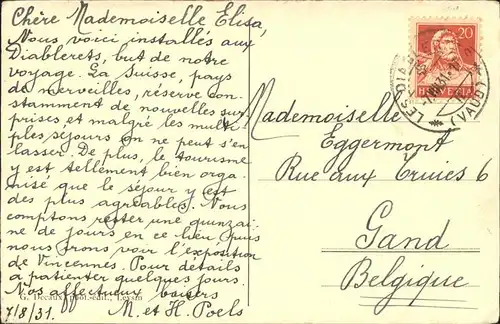 Chère Mademoiselle Elisa,
Nous voici installés aux
Diablerets, but de notre
voyage. La Suisse, pays
de merveilles, réserve con-
stamment de nouvelles sur-
prises et malgré les multi-
ples séjours on ne peut s'en
lasser. De plus, le tourisme
y est tellement bien orga-
nisé que le séjour y est
des plus agréables. Nous
comptons rester une quinzai-
ne de jours en ce lieu puis
nous irons voir l'exposition
de Vincennes. Pour détails
a patienter quelques jours.
Nos affectueux baisers
7/8/31. M. et H. Poels
G. Decaux, phot.-édit., Leysin
20
HELVETIA
LES DIABLERETS
(VAUD)
Mademoiselle
Eggermont
Rue aux truies 6
Gand
Belgique